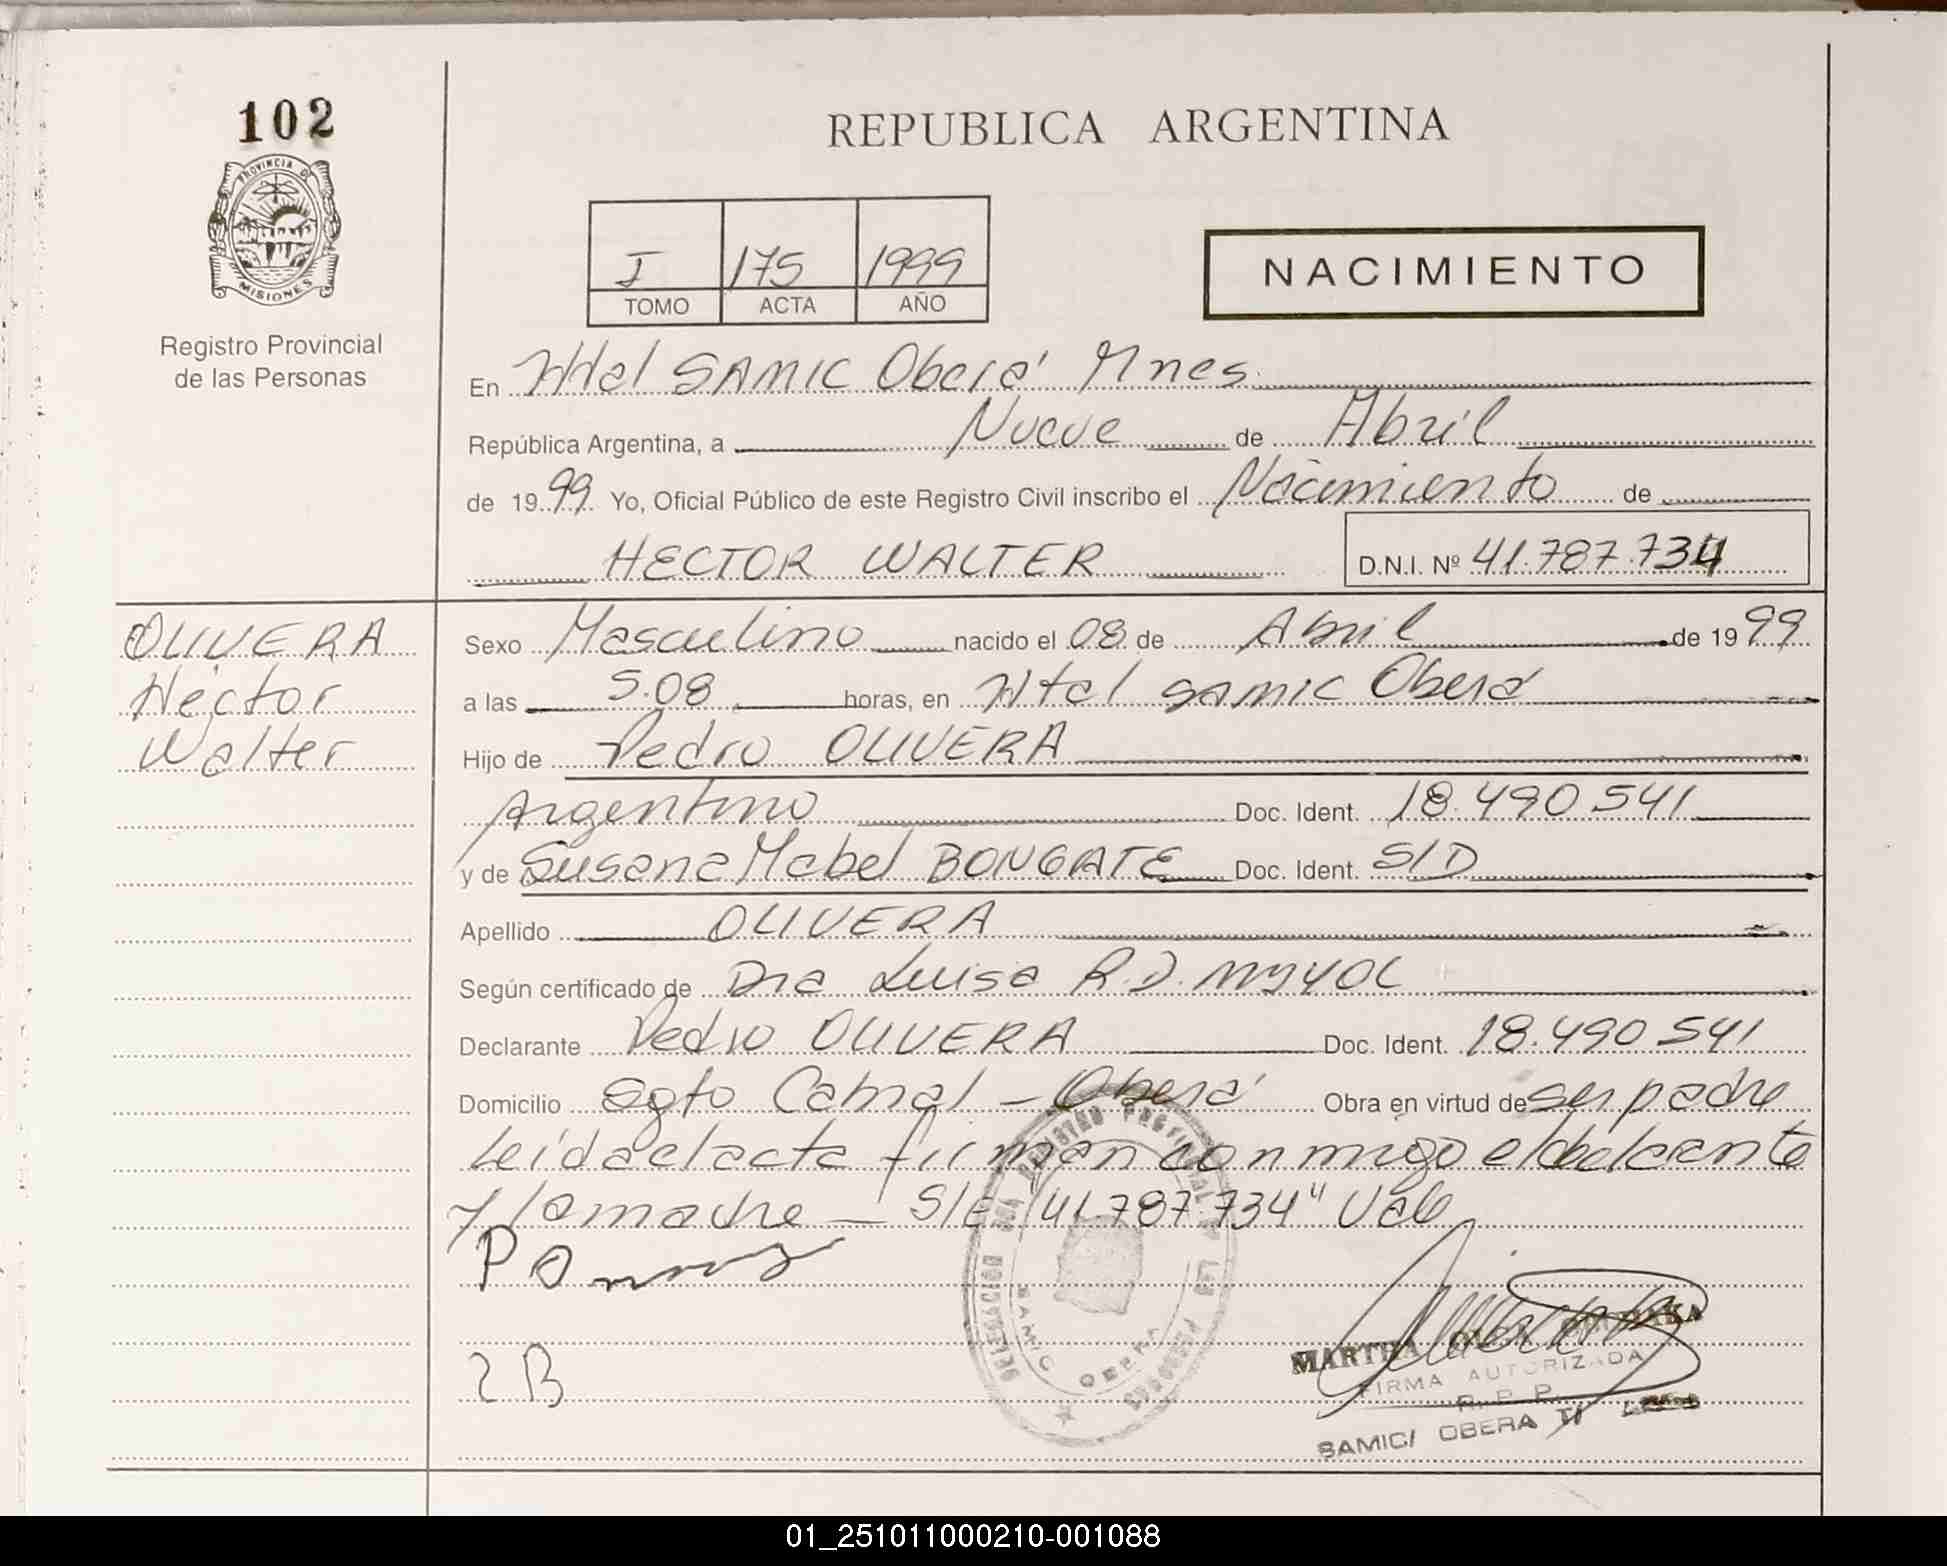 102
PROVINCIA D
MISIONES
Registro Provincial
de las Personas
REPUBLICA ARGENTINA
I 175 1999
TOMO ACTA AÑO
NACIMIENTO
En Htal SAMIC Oberá Mnes.
República Argentina, a Nueve de Abril
de 1999 Yo, Oficial Público de este Registro Civil inscribo el Nacimiento de
HECTOR WALTER D.N.I. Nº 41.787.734
OLIVERA
Hector
Walter
Sexo Masculino nacido el 08 de Abril de 1999
a las 5.08 horas, en Htal SAMIC Oberá
Hijo de Pedro OLIVERA
Argentino Doc. Ident. 18.490.541
y de Susana Mabel BONGATE Doc. Ident. S/D
Apellido OLIVERA
Según certificado de Dra Luisa R.D.
Declarante Pedro OLIVERA Doc. Ident. 18.490541
Domicilio Sgto Cabral - Oberá Obra en virtud de ser padre
Leída el acta firman conmigo el declarante
y la madre - S/E "41.787.734" Vale
DELEGACION DEL REGISTRO PROVINCIAL DE LAS PERSONAS
SAMIC OBERA
MARTHA
FIRMA AUTORIZADA
R. P. P.
SAMIC/ OBERA
01_251011000210-001088